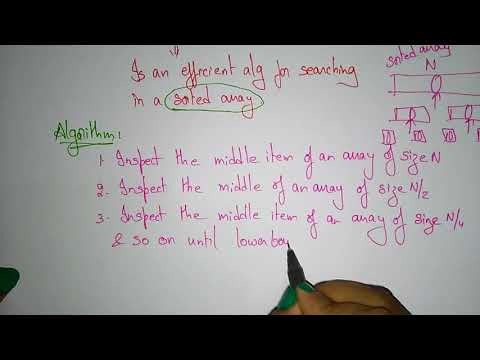 Is an efficient alg for searching
in a soted array
soted array
N
Algorithm:
1. Inspect the middle item of an array of size N
2. Inspect the middle of an array of size N/2
3. Inspect the middle item of an array of size N/4
& so on until lowerbou